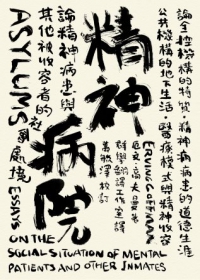 論全控機構的特質・精神病病患的道德生涯
公共機構的地下生活・醫療模式與精神收容
精神
病院
論精神病患與
其他被收容者的
社會處境
ERVING GOFFMAN
厄文・高夫曼著
群學翻譯工作室譯
萬毓澤校訂
ASYLUMS
ESSAYS
ON THE
SOCIAL SITUATION OF MENTAL
PATIENTS AND OTHER INMATES